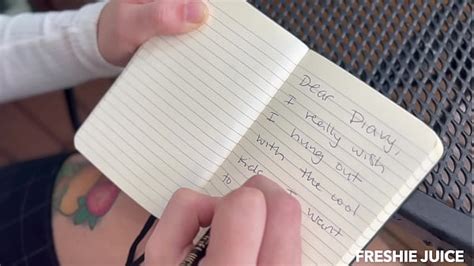 Dear Diary
I really wish
I hung out
with the cool
kids. I want
to
FRESHIE JUICE